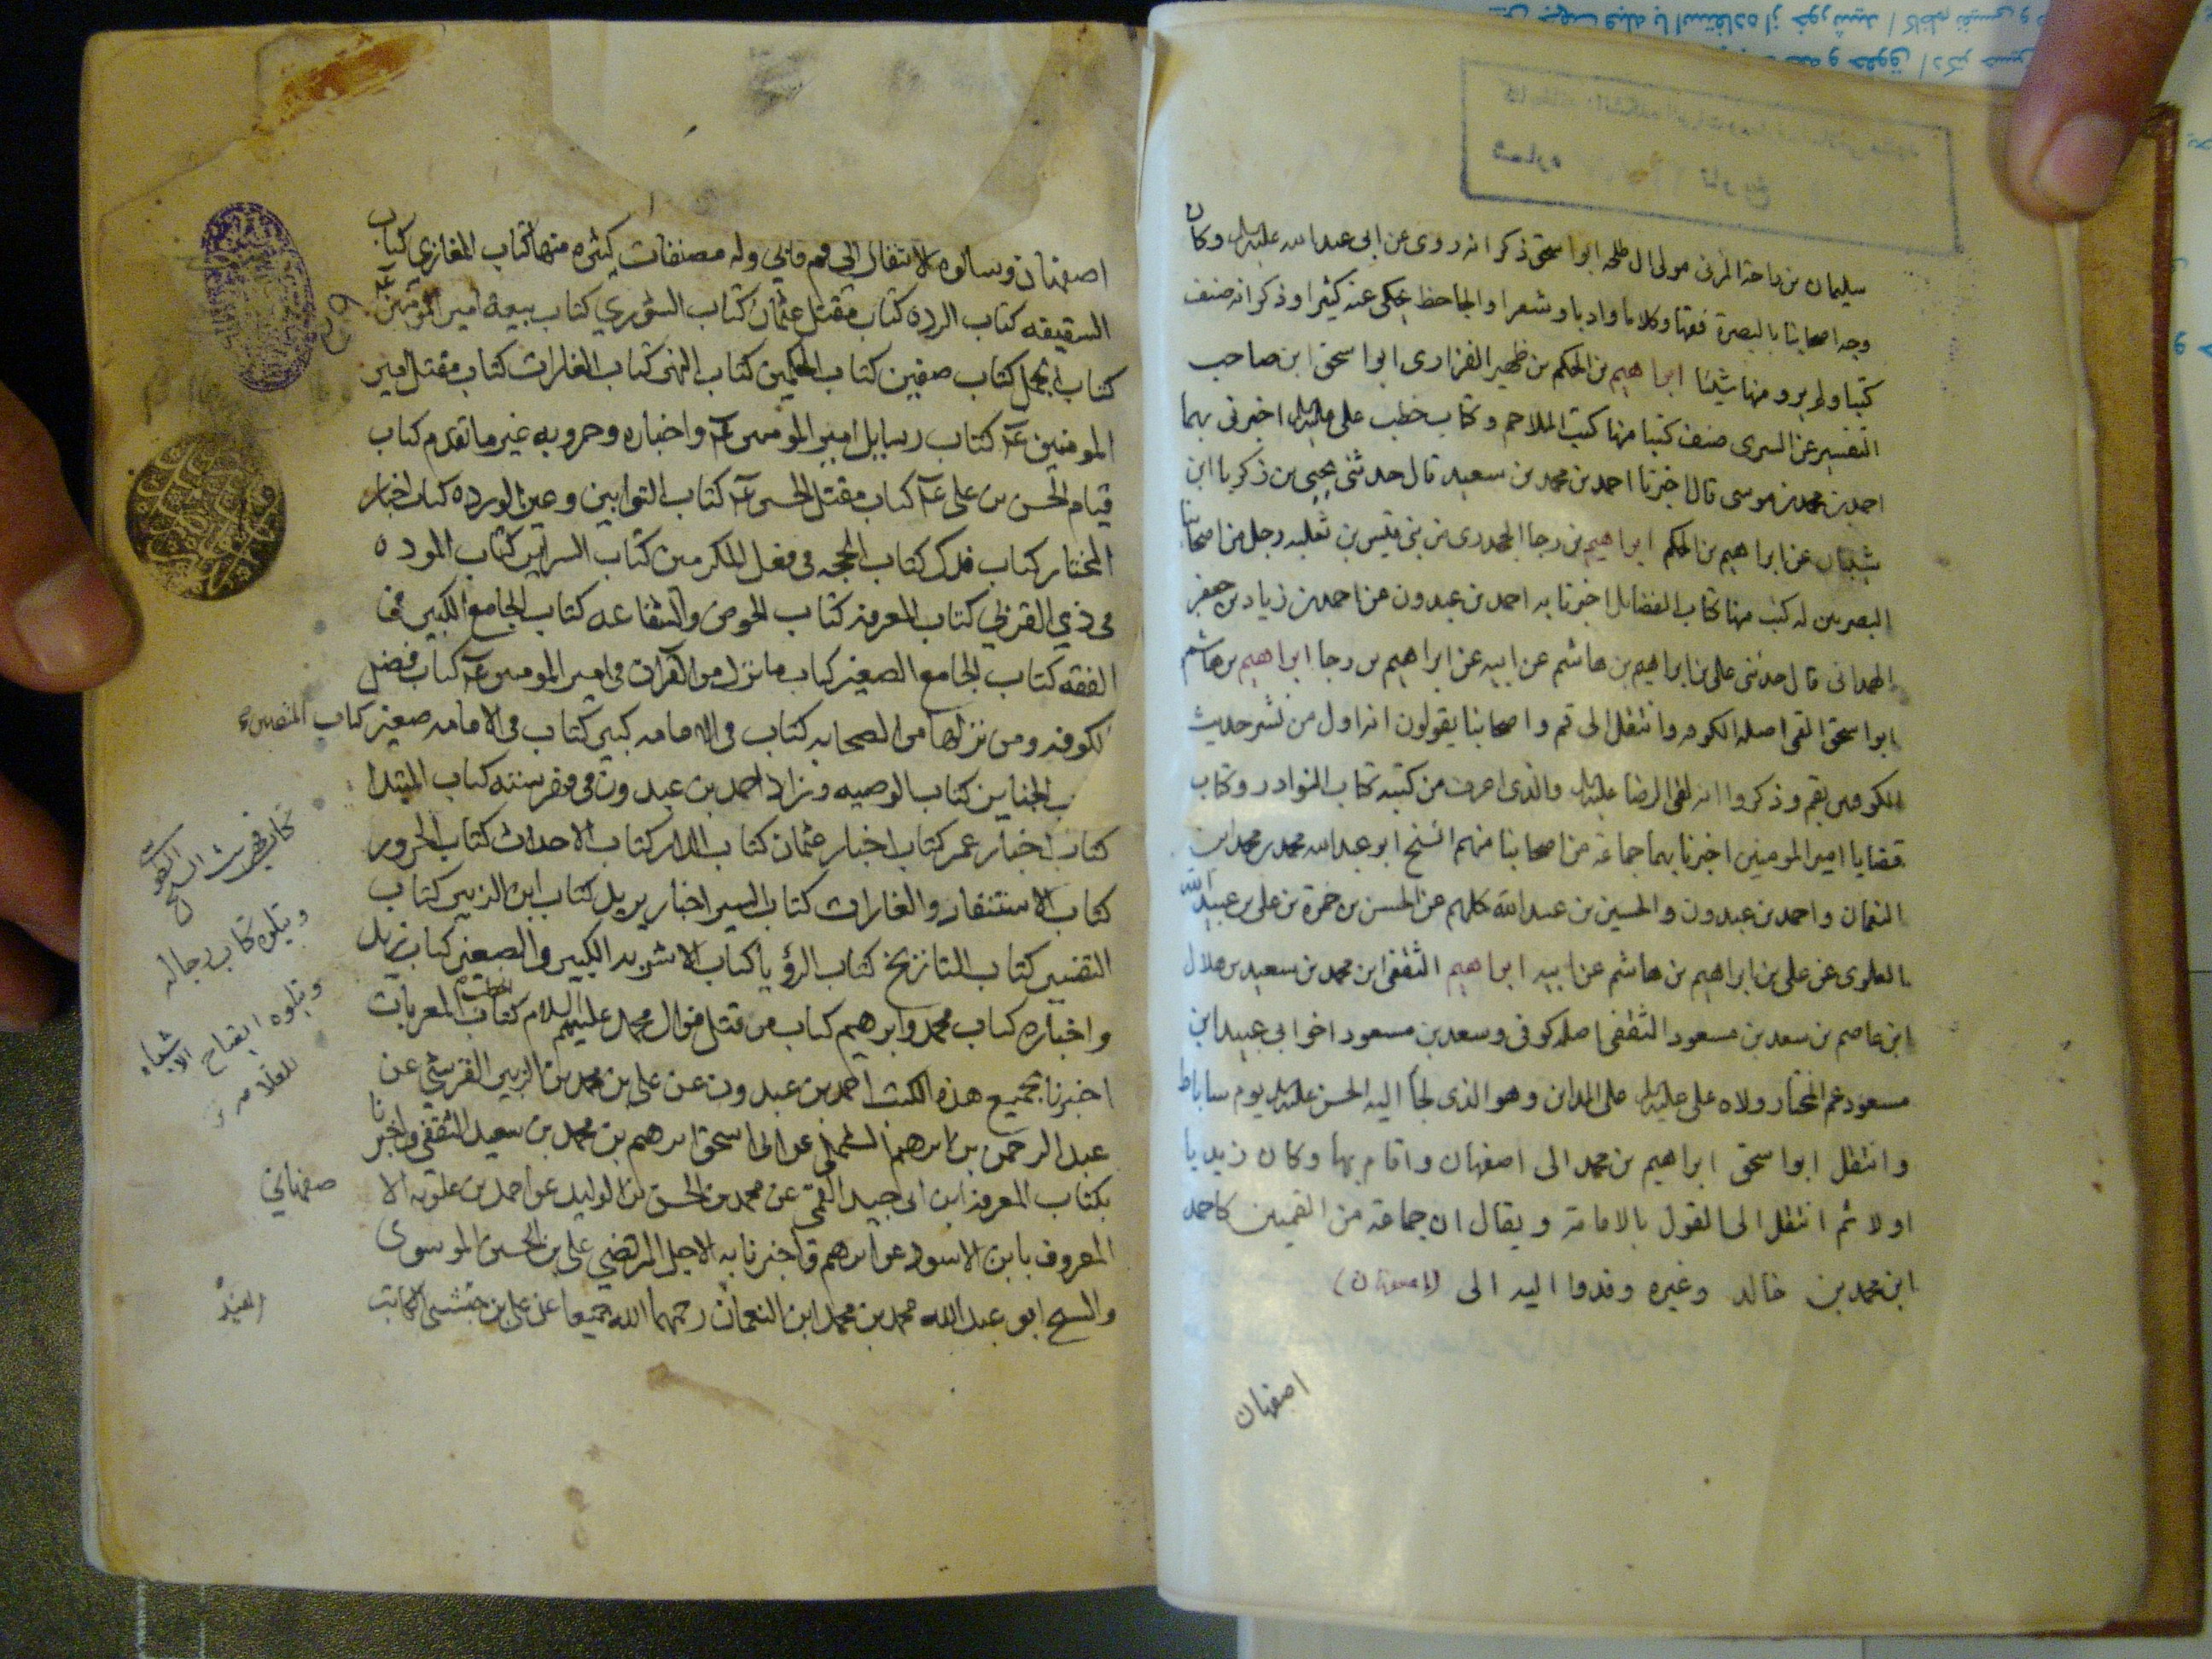 سليمان بن داحة المزنى مولى ال طلحه ابو اسحق ذكر انه روى عن ابى عبد الله عليلم وكان
وجه اصحابنا بالبصرة فقها وكلاما وادبا وشعرا والجاحظ يحكى عنه كثيرا وذكر انه صنف
كتبا ولم يرو منها شيئا ابراهيم بن الحكم بن ظهير الفزارى ابو اسحق ابن صاحب
التفسير عن السرى صنف كتبا منها كتب الملاحم وكتاب خطب على عليلم اخبرنى بهما
احمد بن محمد بن موسى قال اخبرنا احمد بن محمد بن سعيد قال حدثنى يحيى بن زكريا ابن
شيبان عن ابراهيم بن الحكم ابراهيم بن رجا الجحدرى من بنى قيس بن ثعلبه رجل من اصحابنا
البصريين له كتب منها كتاب الفضايل اخبرنا به احمد بن عبدون عن احمد بن زياد بن جعفر
الهمدانى قال حدثنى على بن ابراهيم بن هاشم عن ابيه عن ابراهيم بن رجا ابراهيم بن هاشم
ابو اسحق القمى اصله الكوفه وانتقل الى قم واصحابنا يقولون انه اول من نشر حديث
الكوفيين بقم وذكروا انه لقى الرضا عليلم والذى اعرف من كتبه كتاب النوادر وكتاب
قضايا امير المومنين اخبرنا بهما جماعة من اصحابنا منهم الشيخ ابو عبد الله محمد بن محمد ابن
النعمان واحمد بن عبدون والحسين بن عبيد الله كلهم عن الحسن بن حمزة بن على بن عبيد الله
العلوى عن على بن ابراهيم بن هاشم عن ابيه ابراهيم الثقفى ابن محمد بن سعيد بن هلال
ابن عاصم بن سعد بن مسعود الثقفى اصله كوفى وسعد بن مسعود اخو ابى عبيد ابن
مسعود عم المختار ولاه على عليلم على المداين وهو الذى لجأ اليه الحسن عليلم يوم ساباط
وانتقل ابو اسحق ابراهيم بن محمد الى اصفهان واقام بها وكان زيديا
اولا ثم انتقل الى القول بالامامة ويقال ان جماعة من القميين كاحمد
ابن محمد بن خالد وغيره وفدوا اليه الى (اصفهان)
اصفهان
اصفهان وسالوه الانتقال الى قم فابى وله مصنفات كثيره منها كتاب المغازي كتاب
السقيفه كتاب الرده كتاب مقتل عثمان كتاب الشوري كتاب بيعة امير المومنين ع
كتاب الجمل كتاب صفين كتاب الحكمين كتاب النهر كتاب الغارات كتاب مقتل امير
المومنين ع كتاب رسايل امير المومنين ع واخباره وحروبه غير ما تقدم كتاب
قيام الحسن بن على ع كتاب مقتل الحسين ع كتاب التوابين وعين الورده كتاب اخبار
المختار كتاب فدك كتاب الحجه فى فعل المكرمين كتاب السراير كتاب الموده
فى ذي القربي كتاب المعرفة كتاب الحوض والشفاعه كتاب الجامع الكبير فى
الفقه كتاب الجامع الصغير كتاب ما نزل من القران فى امير المومنين ع كتاب فضل
الكوفه ومن نزلها من الصحابه كتاب فى الامامه كبير كتاب فى الامامه صغير كتاب
الجنايز كتاب الوصيه وزاد احمد بن عبدون فى فهرسته كتاب المبتدا
كتاب اخبار عمر كتاب اخبار عثمان كتاب الدار كتاب الاحداث كتاب الحرور
كتاب الاستنفار والغارات كتاب السير اخبار يزيد كتاب ابن الزبير كتاب
التفسير كتاب التاريخ كتاب الرؤيا كتاب الاشربه الكبير والصغير كتاب زيد
واخباره كتاب محمد وابرهيم كتاب من قتل من ال محمد عليهم السلام كتاب المعربات
اخبرنا بجميع هذه الكتب احمد بن عبدون عن على بن محمد بن الزبير القرشي عن
عبد الرحمن بن ابرهيم المستملى عن ابى اسحق ابرهيم بن محمد بن سعيد الثقفى واخبرنا
بكتاب المعرفة ابن ابى جيد القمى عن محمد بن الحسن بن الوليد عن احمد بن علويه الا
صفهاني
المعروف بابن الاسود عن ابرهيم واخبرنا به الاجل المرتضي على بن الحسين الموسوى
والشيخ ابو عبد الله محمد بن محمد ابن النعمان رحمهما الله جميعا عن على بن حبشى الكاتب
المفيد
كتاب فهرست الشيخ
ويتلوه كتاب رجاله
ويتلوه ايضاح الاشتباه
للعلامه
شماره
تاريخ